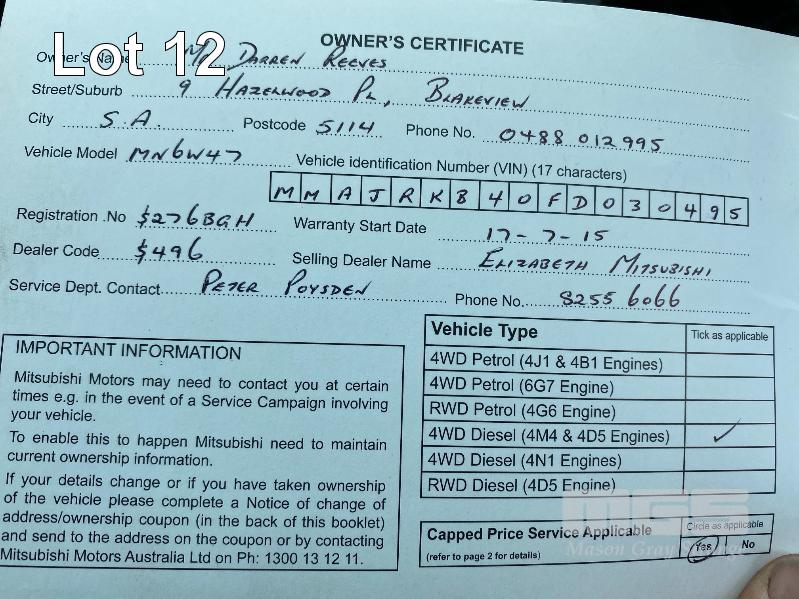 Lot 12
OWNER'S CERTIFICATE
Owner's Name Mr Darren Reeves
Street/Suburb 9 Hazelwood Pl, Blakeview
City S.A. Postcode 5114 Phone No. 0488 012995
Vehicle Model MN6W47 Vehicle identification Number (VIN) (17 characters)
MMAJRKB40FD030495
Registration .No S276BGH Warranty Start Date 17-7-15
Dealer Code $496 Selling Dealer Name Elizabeth Mitsubishi
Service Dept. Contact Peter Poysden Phone No. 8255 6066
IMPORTANT INFORMATION
Mitsubishi Motors may need to contact you at certain
times e.g. in the event of a Service Campaign involving
your vehicle.
To enable this to happen Mitsubishi need to maintain
current ownership information.
If your details change or if you have taken ownership
of the vehicle please complete a Notice of change of
address/ownership coupon (in the back of this booklet)
and send to the address on the coupon or by contacting
Mitsubishi Motors Australia Ltd on Ph: 1300 13 12 11.
Vehicle Type Tick as applicable
4WD Petrol (4J1 & 4B1 Engines)
4WD Petrol (6G7 Engine)
RWD Petrol (4G6 Engine)
4WD Diesel (4M4 & 4D5 Engines) ✓
4WD Diesel (4N1 Engines)
RWD Diesel (4D5 Engine)
Capped Price Service Applicable Circle as applicable
(refer to page 2 for details) Yes No
MGS
Mason Gray Strange